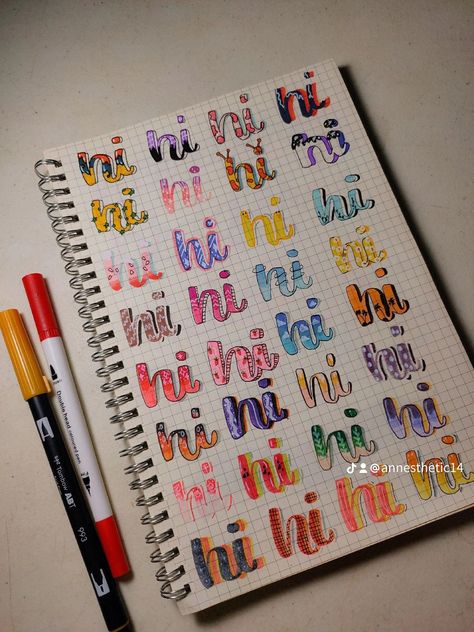 hi hi hi hi
hi hi hi hi
hi hi hi hi
hi hi hi hi
hi hi hi hi
hi hi hi hi
hi hi hi hi
hi hi hi hi
@annesthetic14
Double head
Tombow ABT